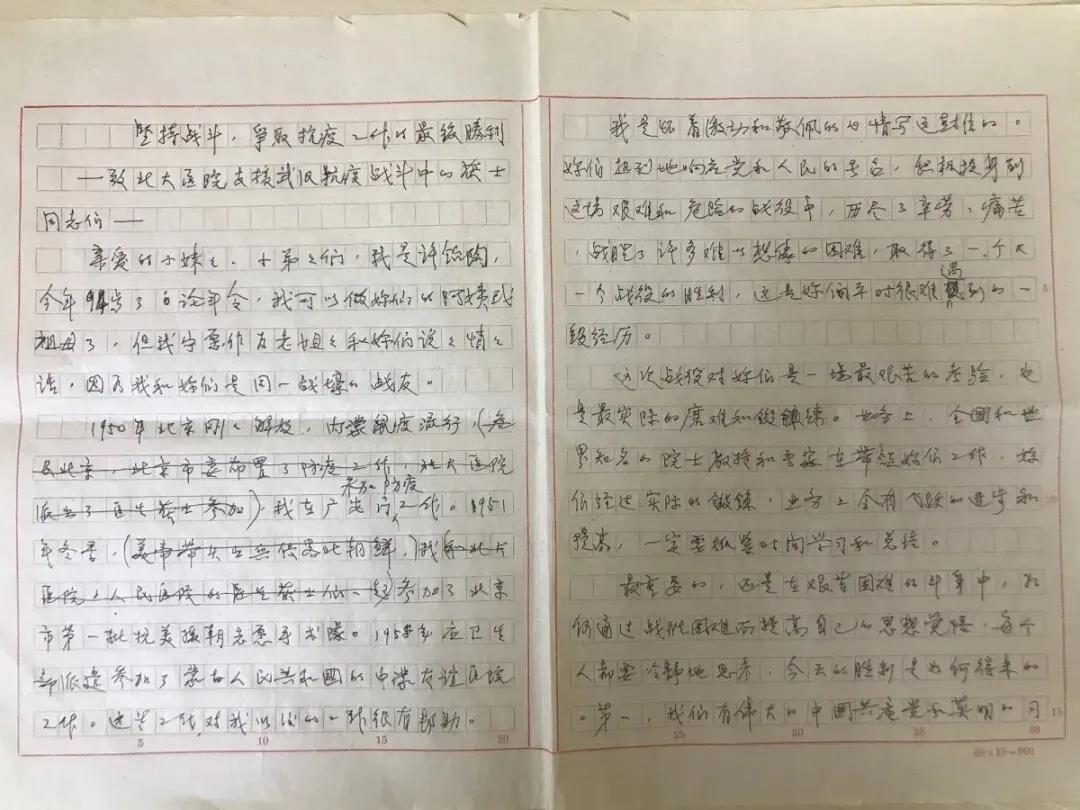 坚持战斗,争取抗疫工作的最後勝利
——致北大医院支援武汉抗疫战斗中的护士
同志们——
亲爱的小妹々、小弟々们,我是许
今年94岁了,论年令,我可以做妳们的阿姨或
祖母了,但我宁愿作为老姐々和妳们说々情々
话,因为我和妳们是同一战壕的战友。
1950年北京刚々解放,内蒙鼠疫流行,(危
及北京,北京市委布置了防疫工作,北大医院
派出了医生护士参加)我在广安门参加防疫工作。1951
年冬季,(美帝带头出兵侵略北朝鲜,)我和北大
医院、人民医院的医生护士们一起参加了北京
市第一批抗美援朝志愿手术隊。1955年应卫生
部派遣参加了蒙古人民共和國的中蒙友谊医院
工作。这些工作对我以後的工作很有帮助。
我是怀着激动和敬佩的心情写这封信的。
妳们想到地响应党和人民的号召,积极投身到
这場艰难和危险的战役中,历尽了辛劳、痛苦
,战胜了许多难以想像的困难,取得了一个又
一个战役的胜利,这是妳们平时很难遇到的一
段经历。
这次战役对妳们是一場最艰苦的考验,也
是最实际的磨难和鍛鍊。业务上,全國和世
界知名的院士教授和专家在带领妳们工作,妳
们经过实际的鍛鍊,业务上会有飞跃的进步和
提高,一定要抓紧时间学习和总结。
最重要的,还是在艰苦困难的斗争中,如
何通过战胜困难而提高自己的思想觉悟,每个
人都要冷静地思考,今天的胜利是如何得来的
。第一,我们有伟大的中国共产党和英明的习
5 10 15 20
25 30 35 40
5
10
15
40×15=600